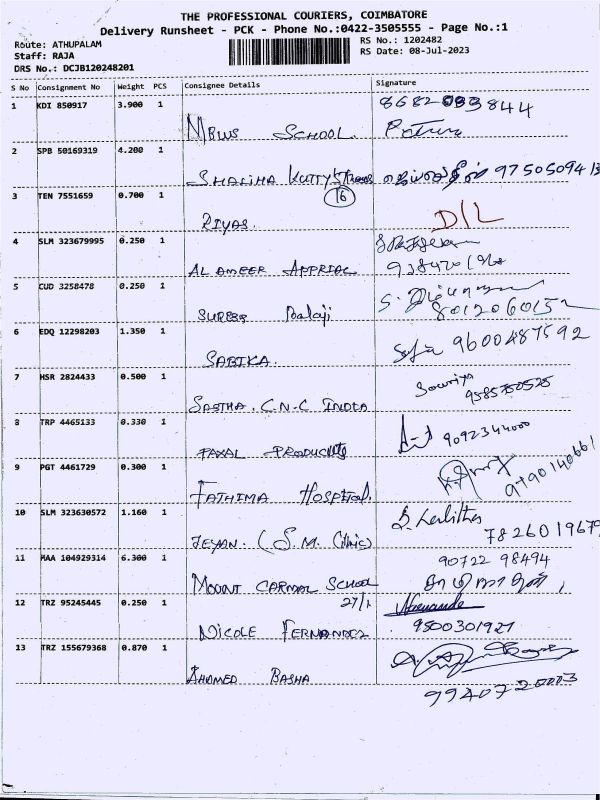 THE PROFESSIONAL COURIERS, COIMBATORE
Delivery Runsheet - PCK - Phone No.:0422-3505555 - Page No.:1
Route: ATHUPALAM
RS No.: 1202482
Staff: RAJA
RS Date: 08-Jul-2023
DRS No.: DCJB120248201
S No Consignment No Weight PCS Consignee Details Signature
1 KDI 850917 3.900 1
8682093844
MBWS SCHOOL
2 SPB 50169319 4.200 1
SHALIMA KUTTY
16
3 TEN 7551659 0.700 1
RIYAS. D/L
4 SLM 323679995 0.250 1
AL AMEER
5 CUD 3258478 0.250 1
SURESH Balaji
6 EDQ 12298203 1.350 1
SABIKA. 9600487592
7 HSR 2824433 0.500 1
SASTHA. C.N.C INDIA
8 TRP 4465133 0.330 1
9092344000
FAXAL PRODUCTS
9 PGT 4461729 0.300 1
FATHIMA HOSPITAL. 9790140661
10 SLM 323630572 1.160 1
JEYAN. (S.M. Clinic) 7826019679
11 MAA 104929314 6.300 1
90722 98494
MOUNT CARMAL SCHOOL
27/1
12 TRZ 95245445 0.250 1
NICOLE FERNANDEZ 9500301927
13 TRZ 155679368 0.870 1
AHAMED BASHA
9940720003